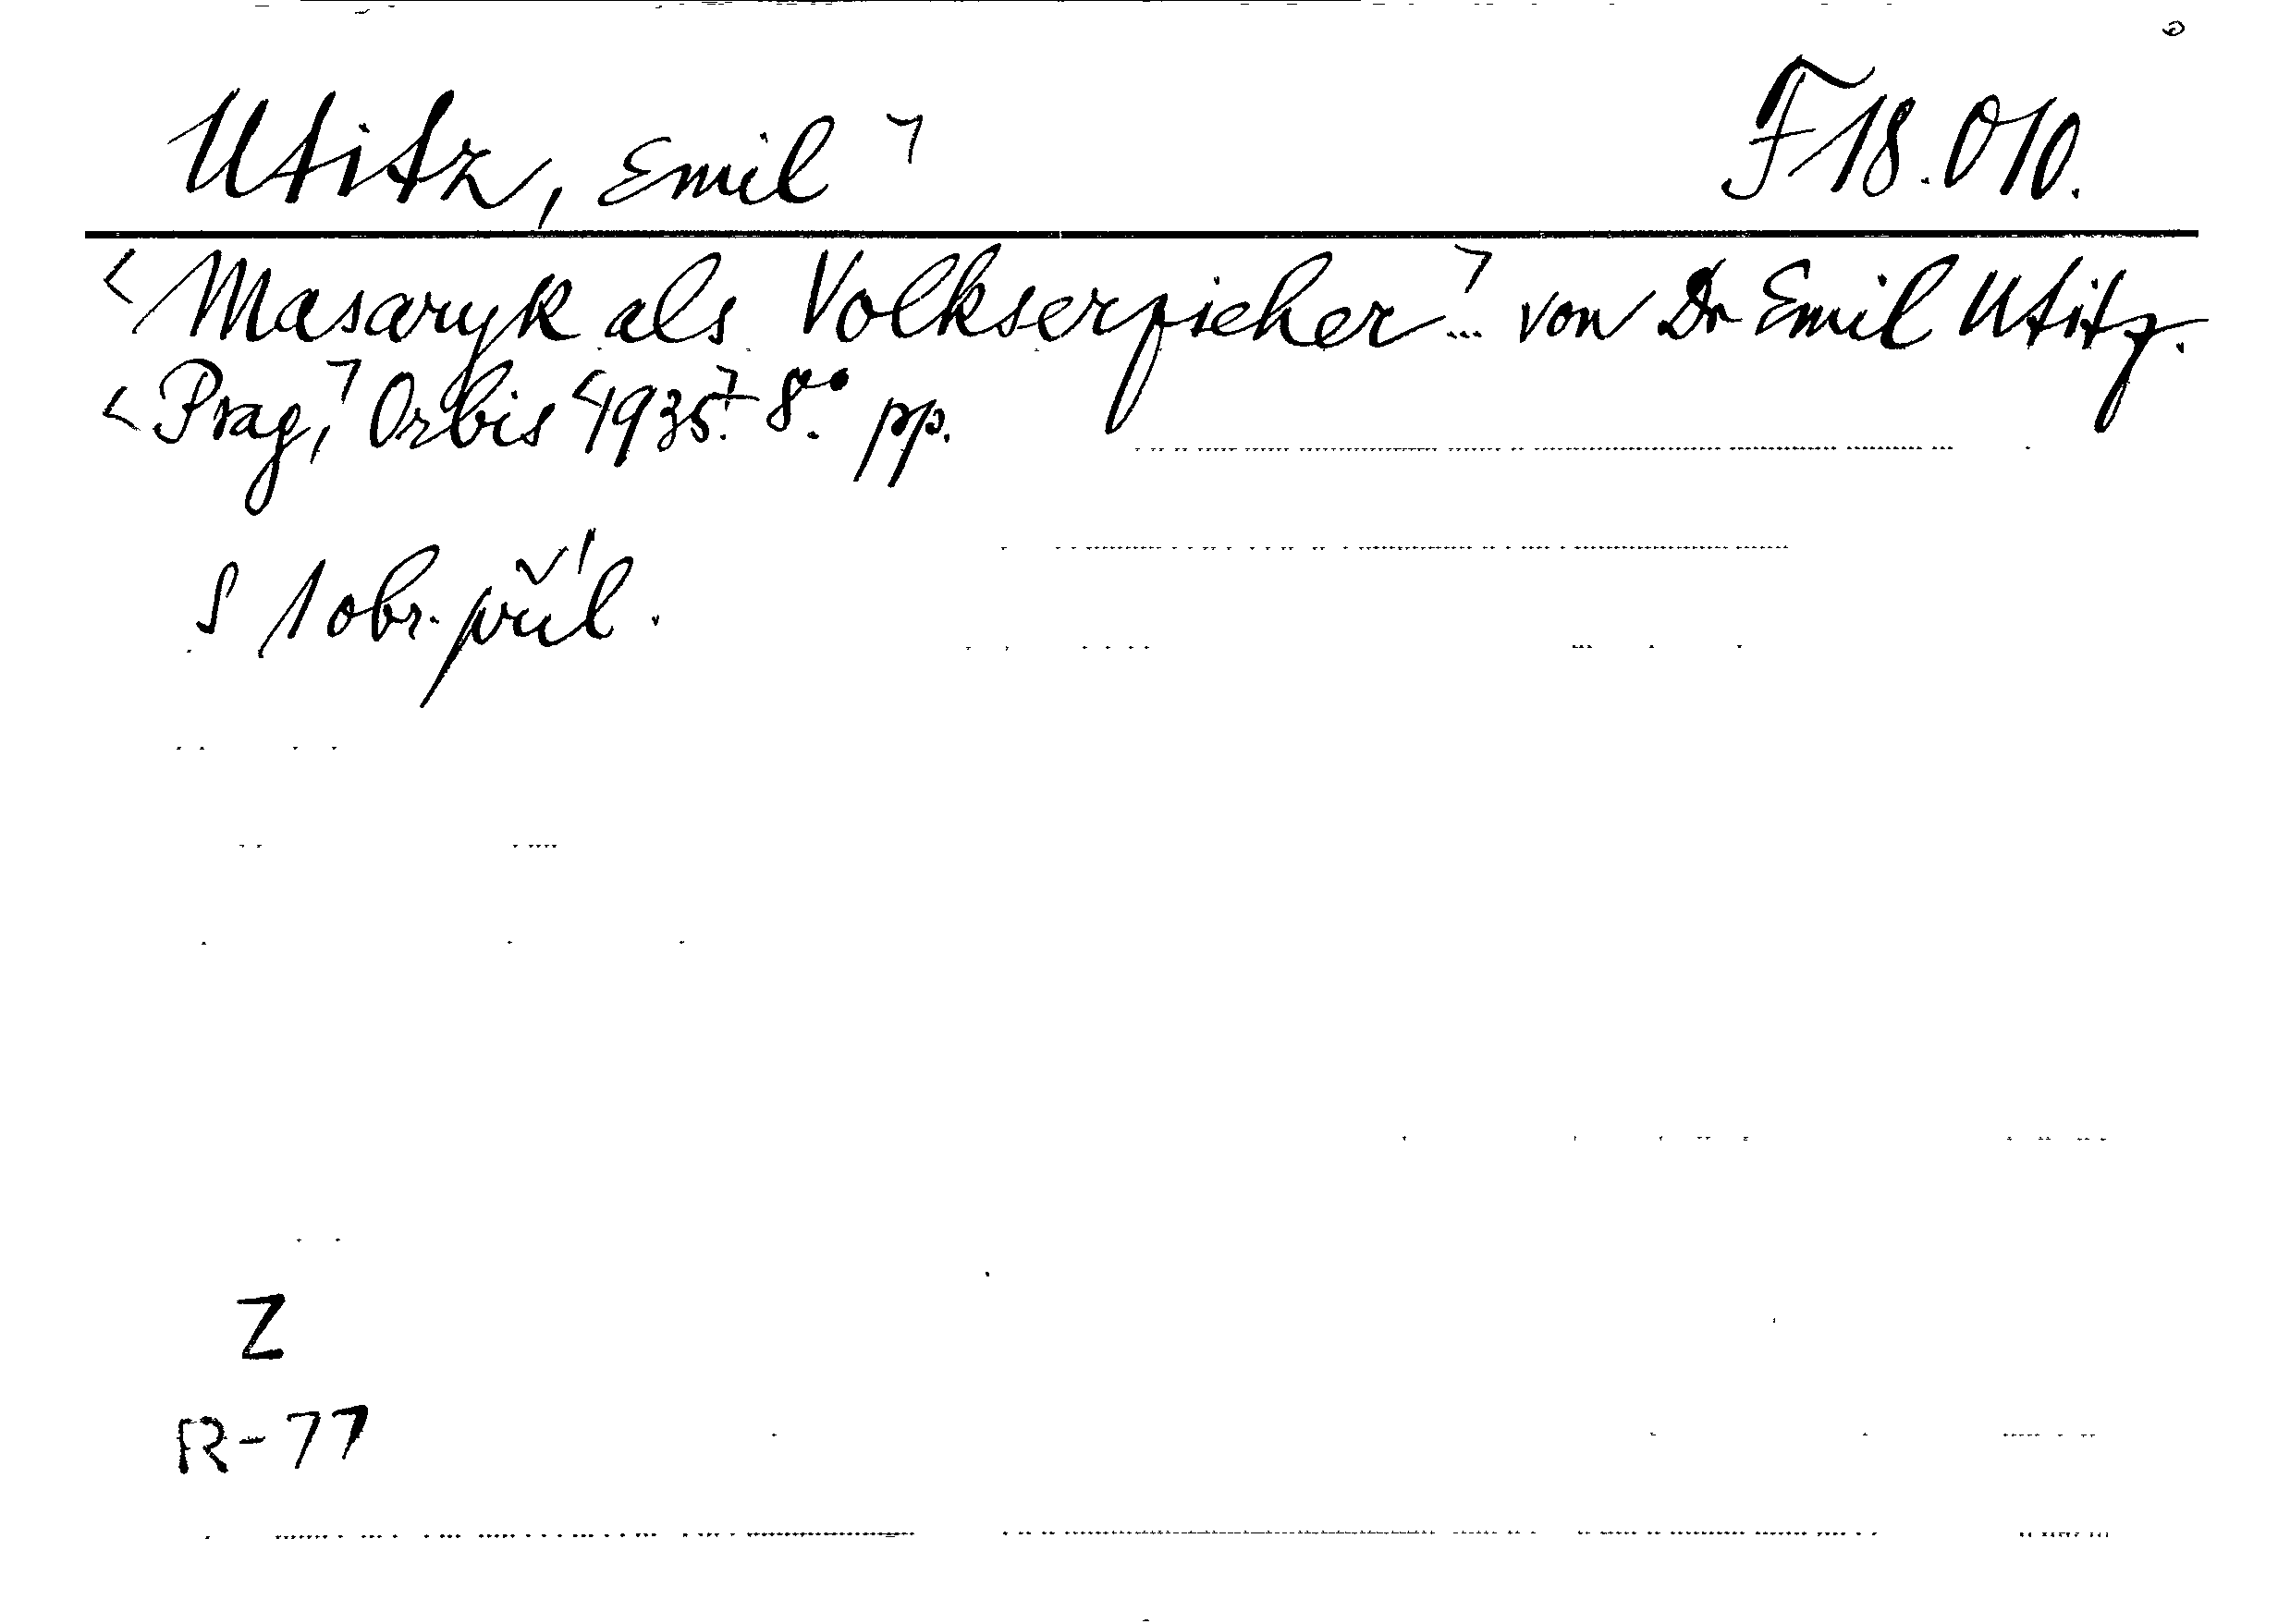 Utitz, Emil ㄱ F 18.010.
<Masaryk als Volkserzieher ㄱ... von Dr Emil Utitz.
<Prag,ㄱ Orbis <1935.ㄱ- 8°. pp.
S 1 obr. příl.
Z
R-77